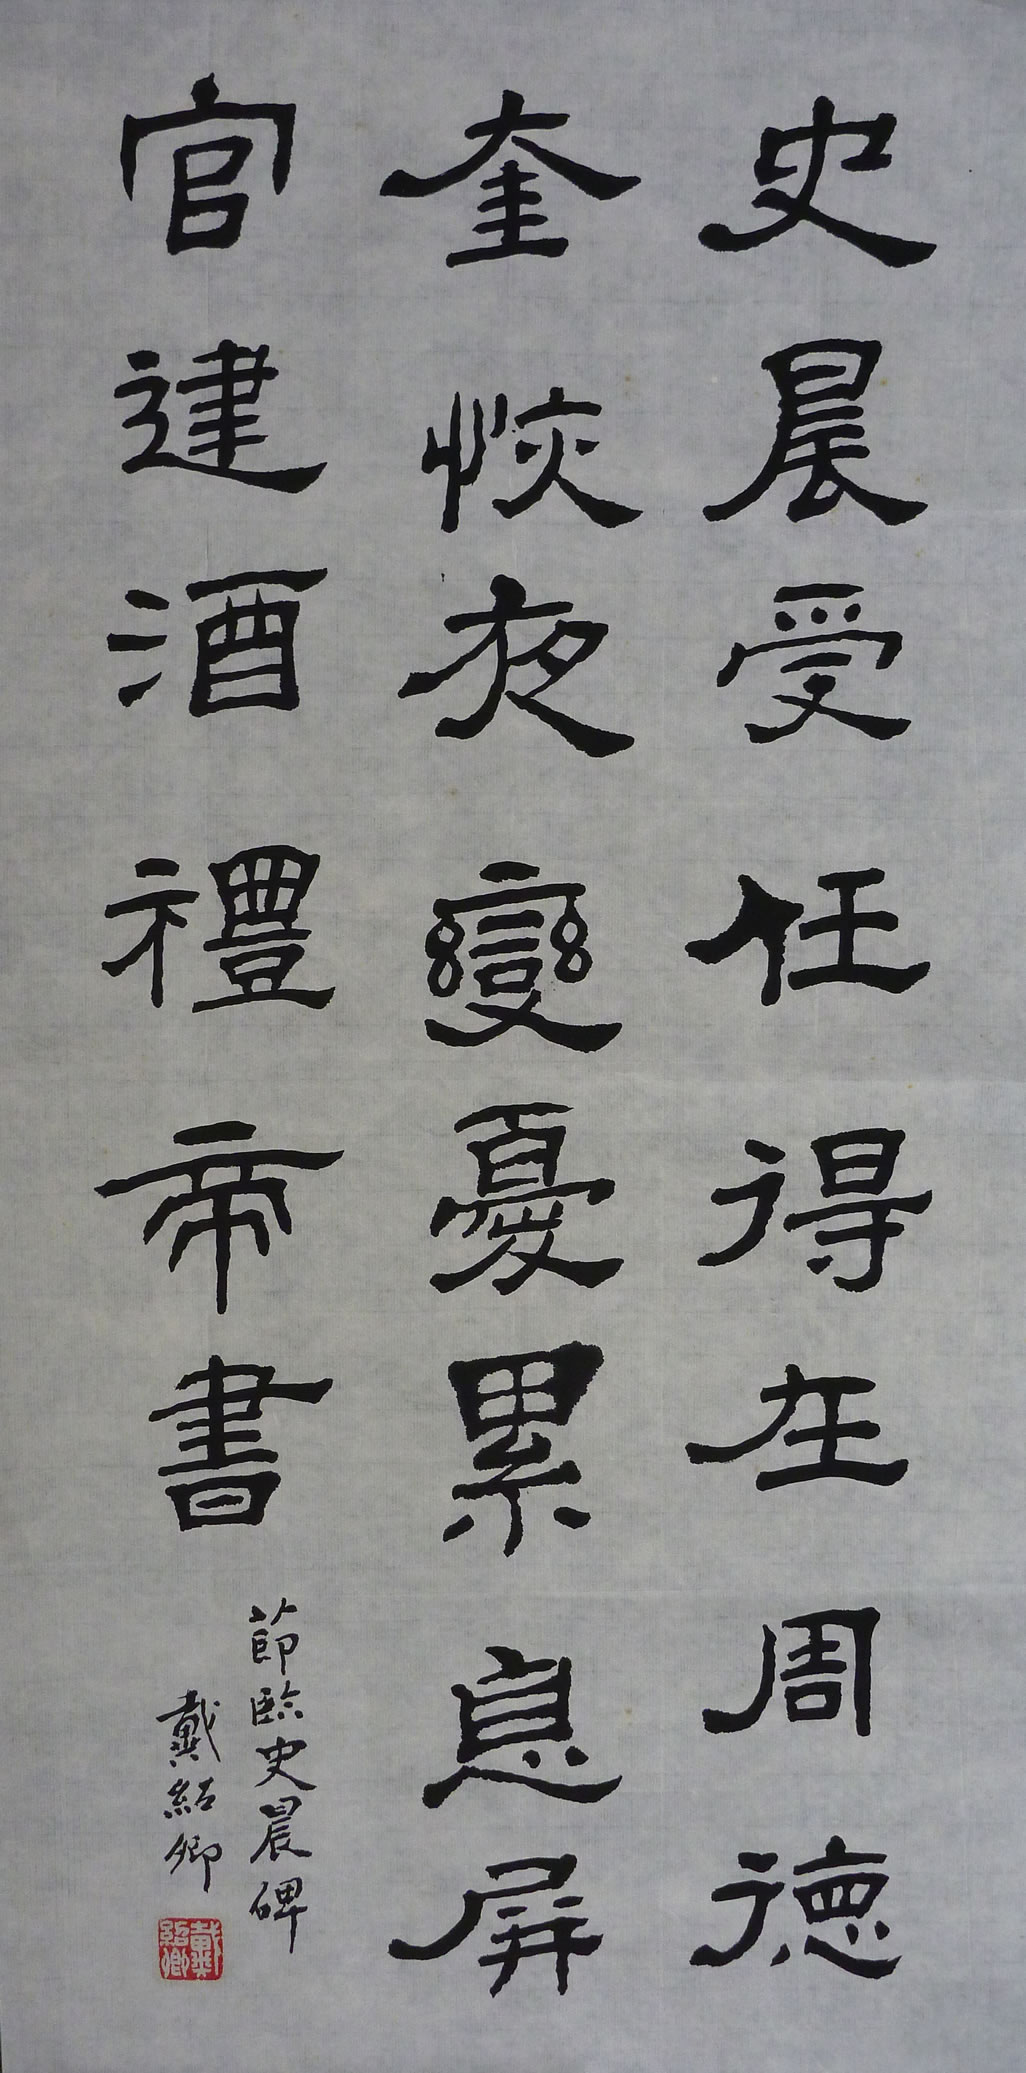 史晨受任得在周德
奎恢夜變憂累息屏
官建酒禮帝書
節臨史晨碑
戴紹卿
戴紹卿